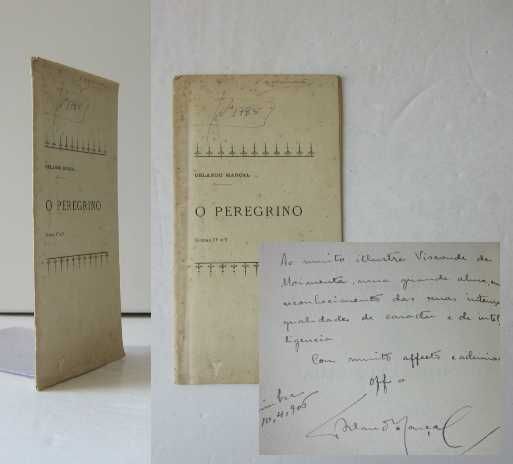 nº 1785
ORLANDO MARÇAL
O PEREGRINO
nº 1785
ORLANDO MARÇAL
O PEREGRINO
Ao muito illustre Visconde de
Moimenta, numa grande alma, em
reconhecimento das suas intensas
qualidades de caracter e de intel
ligencia
Com muito affecto e admira
Off o
imbra
10,4,906
Orlando Marçal